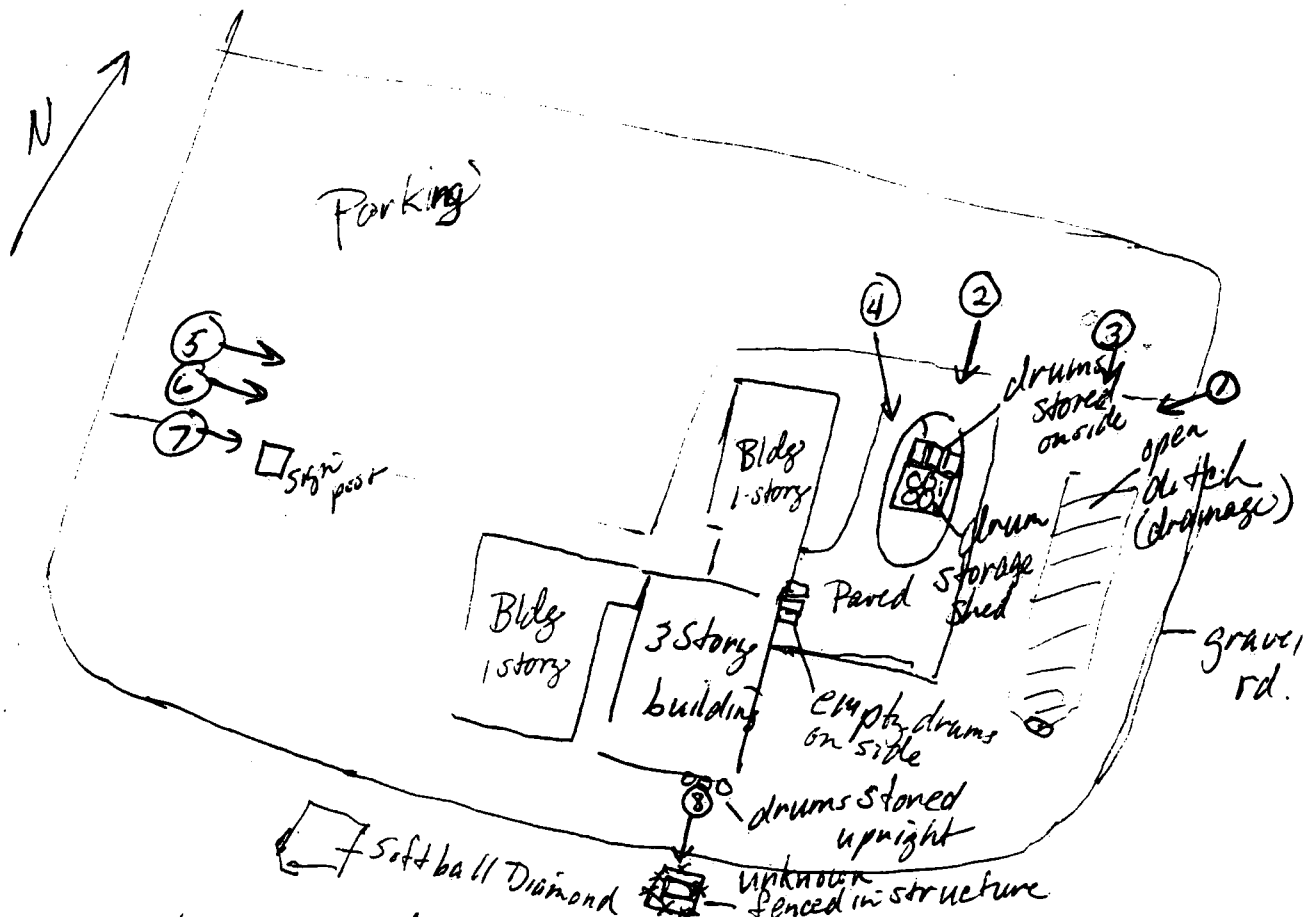 N
Parking
4
2
3
1
5
6
7
sign
post
drums
stored
on side
open
ditch
(drainage)
Bldg
1-story
drum
storage
shed
Paved
gravel
rd.
Bldg
1 story
3 Story
building
empty drums
on side
8
drums stored
upright
Softball Diamond
unknown
fenced in structure